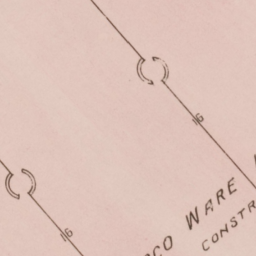 16
16
CO WARE
CONSTR